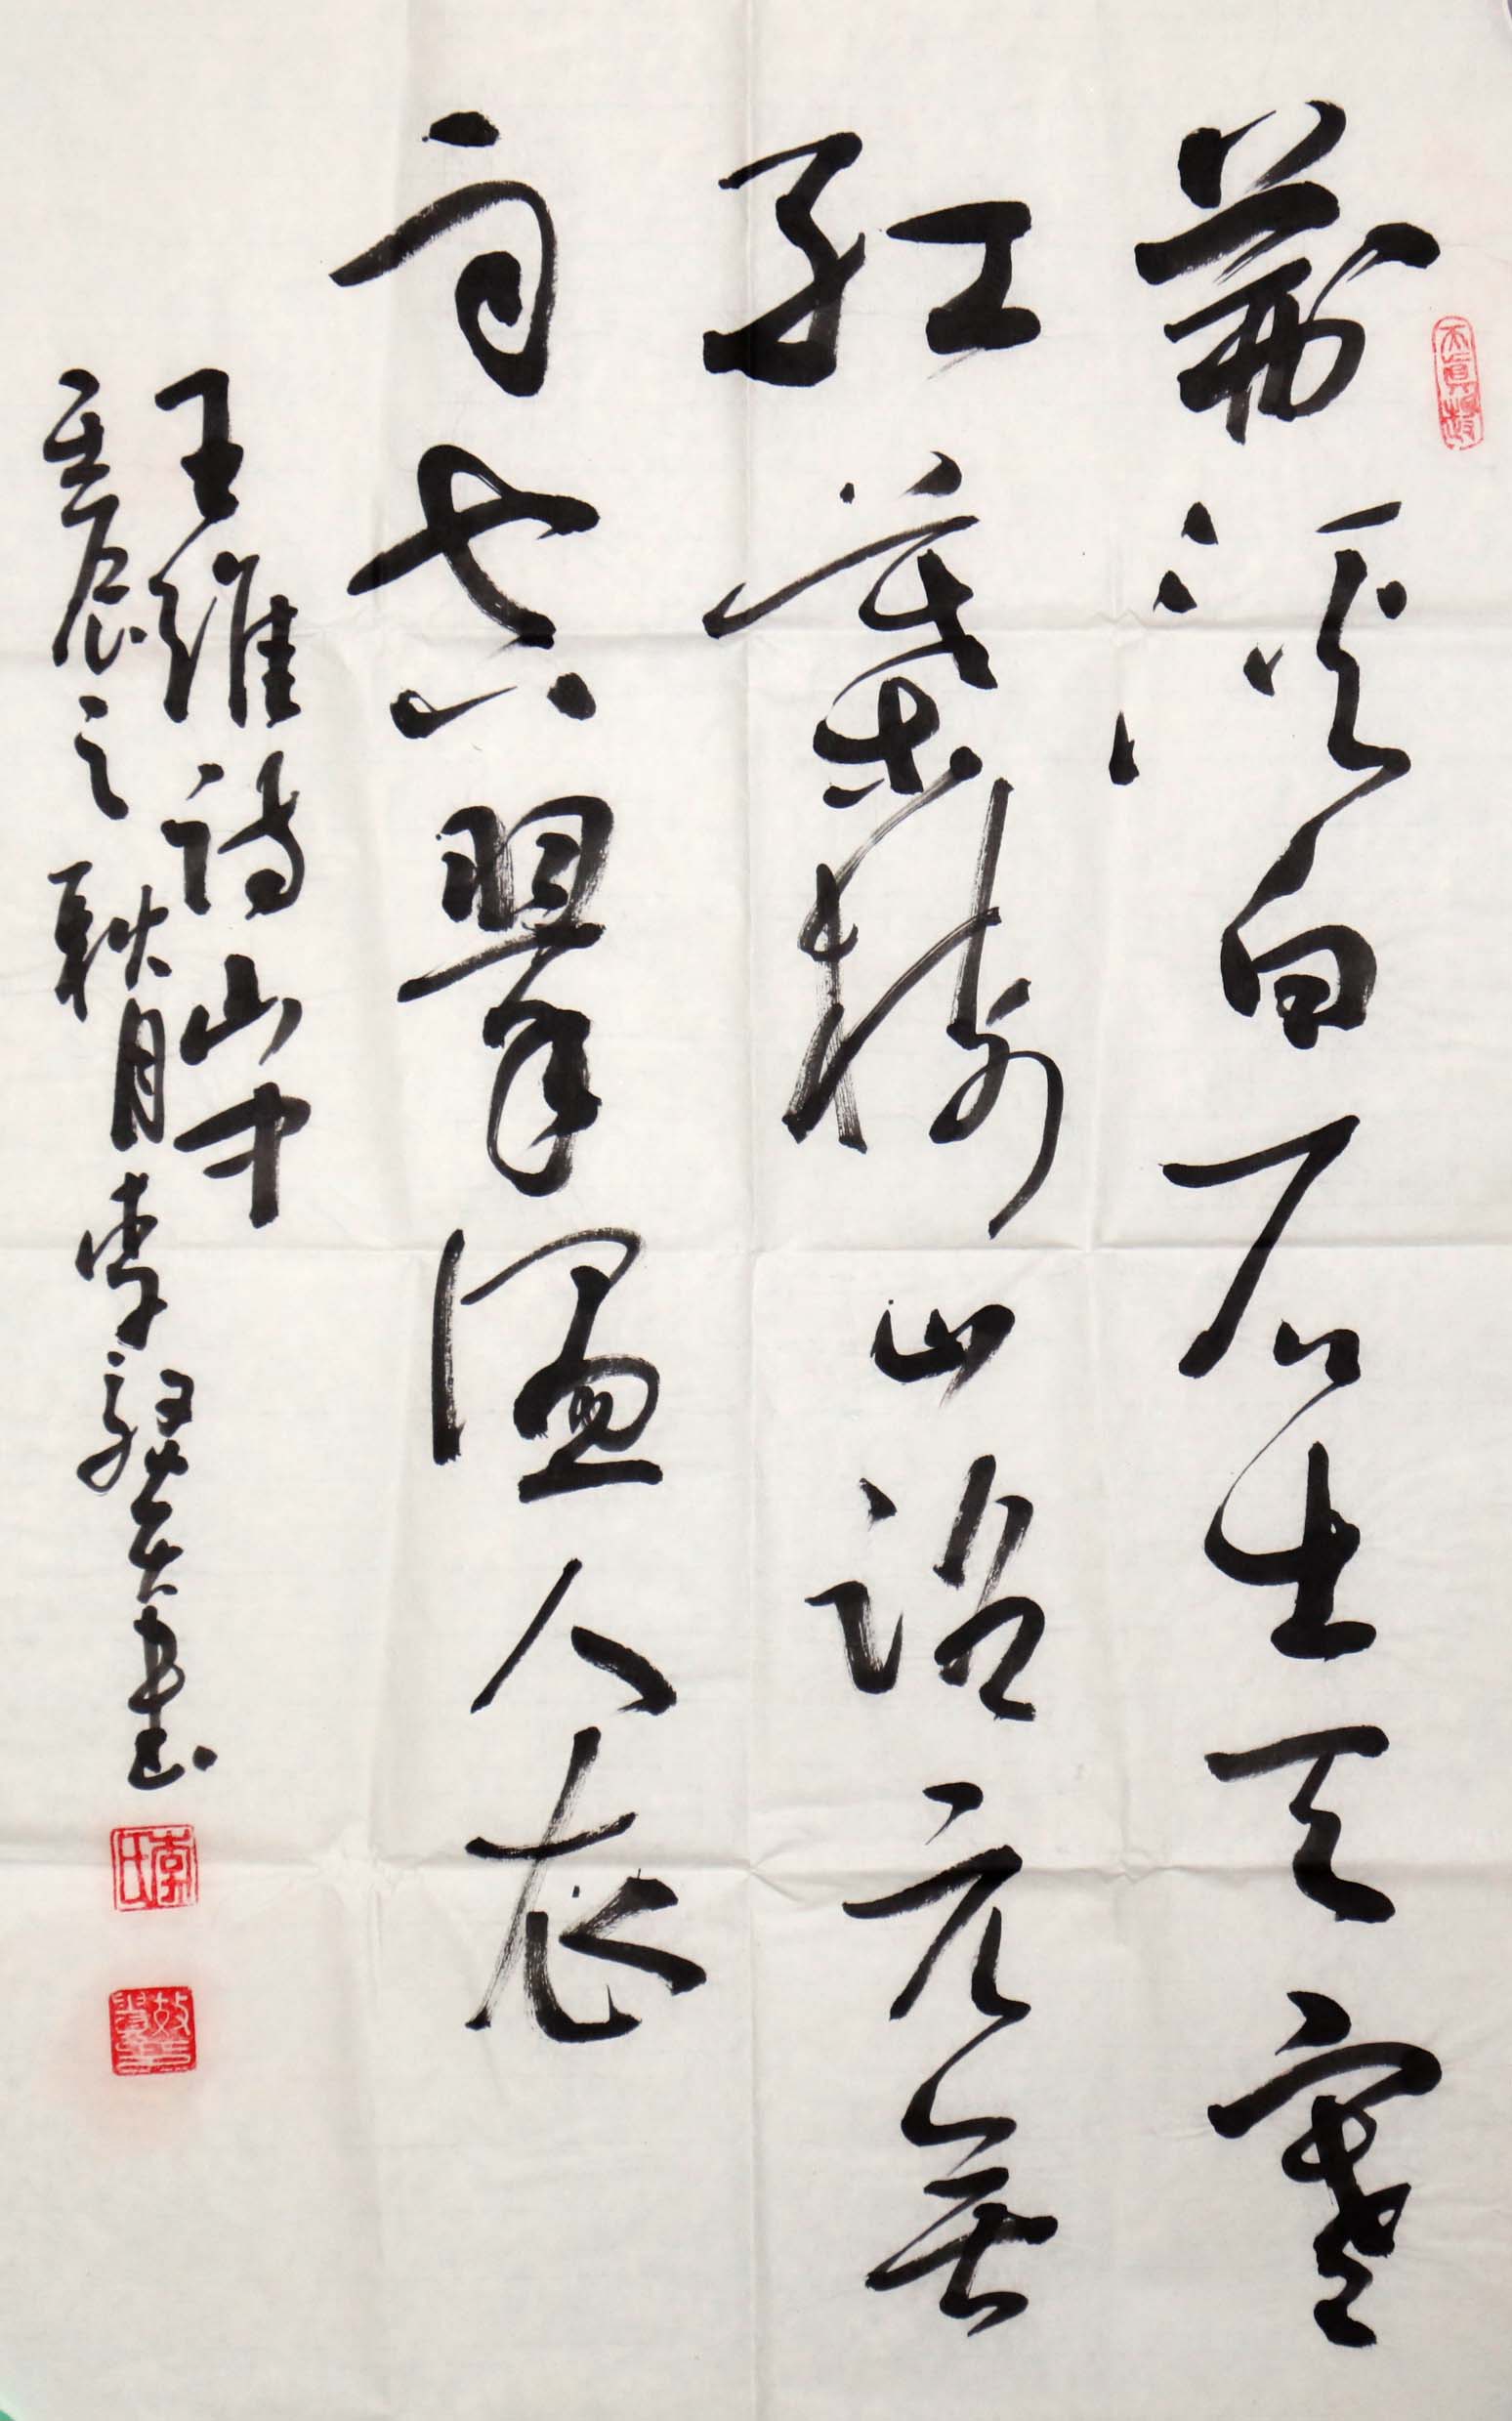 荆溪白石出天寒
紅葉稀山路元無
雨空翠溼人衣
王維詩山中
壬辰之秋月李
書
李氏